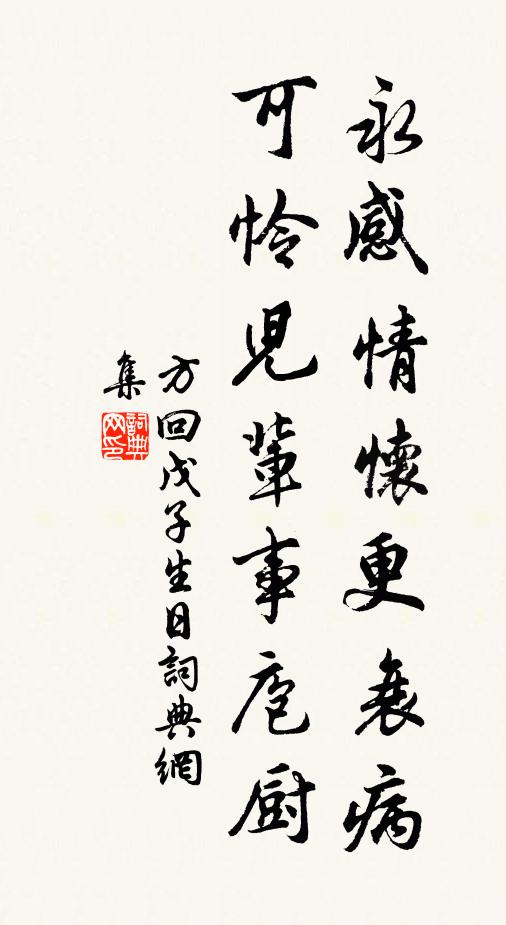 永感情懷更衰病
可怜兒輩事庖厨
方回戊子生日詞典網
集
詞典网印